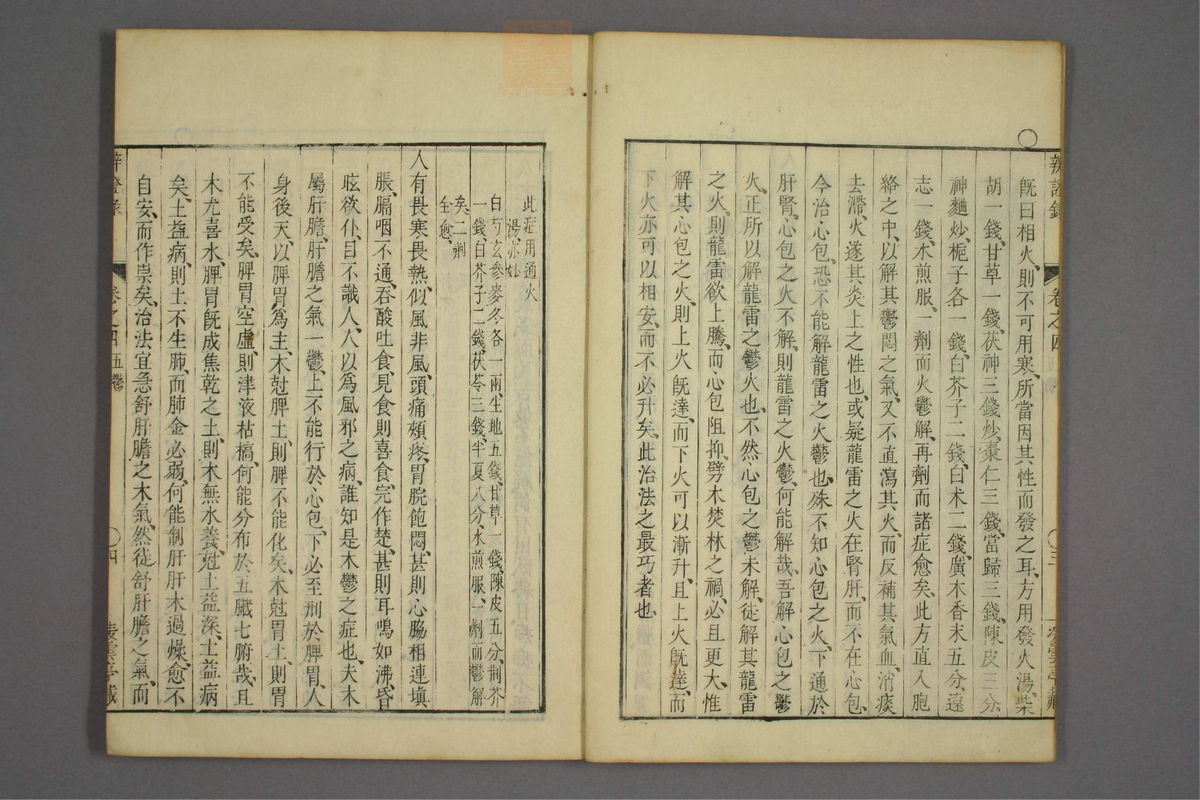 既曰相火則不可用寒所當因其性而發之耳方用發火湯柴
胡一錢甘草一錢茯神三錢炒棗仁三錢當歸三錢陳皮三分
神麯炒梔子各一錢白芥子二錢白朮二錢廣木香末五分遠
志一錢水煎服一劑而火鬱解再劑而諸症愈矣此方直入胞
絡之中以解其鬱悶之氣又不直瀉其火而反補其氣血消痰
去滯火遂其炎上之性也或疑龍雷之火在腎肝而不在心包
今治心包恐不能解龍雷之火鬱也殊不知心包之火下通於
肝腎心包之火不解則龍雷之火鬱何能解哉吾解心包之鬱
火正所以解龍雷之鬱火也不然心包之鬱未解徒解其龍雷
之火則龍雷欲上騰而心包阻抑劈木焚林之禍必且更大惟
解其心包之火則上火既達而下火可以漸升且上火既達而
下火亦可以相安而不必升矣此治法之最巧者也
辨證錄 卷之四 三
此症用通火
湯亦妙
白芍玄參麥冬各一兩生地五錢甘草一錢陳皮五分荊芥
一錢白芥子二錢茯苓三錢半夏八分水煎服一劑而鬱解
矣二劑
全愈
人有畏寒畏熱似風非風頭痛頰疼胃脘飽悶甚則心脇相連填
脹膈咽不通吞酸吐食見食則喜食完作楚甚則耳鳴如沸昏
眩欲仆目不識人人以為風邪之病誰知是木鬱之症也夫木
屬肝膽肝膽之氣一鬱上不能行於心包下必至刑於脾胃人
身後天以脾胃為主木尅脾土則脾不能化矣木尅胃土則胃
不能受矣脾胃空虛則津液枯槁何能分布於五臟七腑哉且
木尤喜水脾胃既成焦乾之土則木無水養尅土益深土益病
矣土益病則土不生肺而肺金必弱何能制肝肝木過燥愈不
自安而作祟矣治法宜急舒肝膽之木氣然徒舒肝膽之氣而
卷之四 五鬱 四